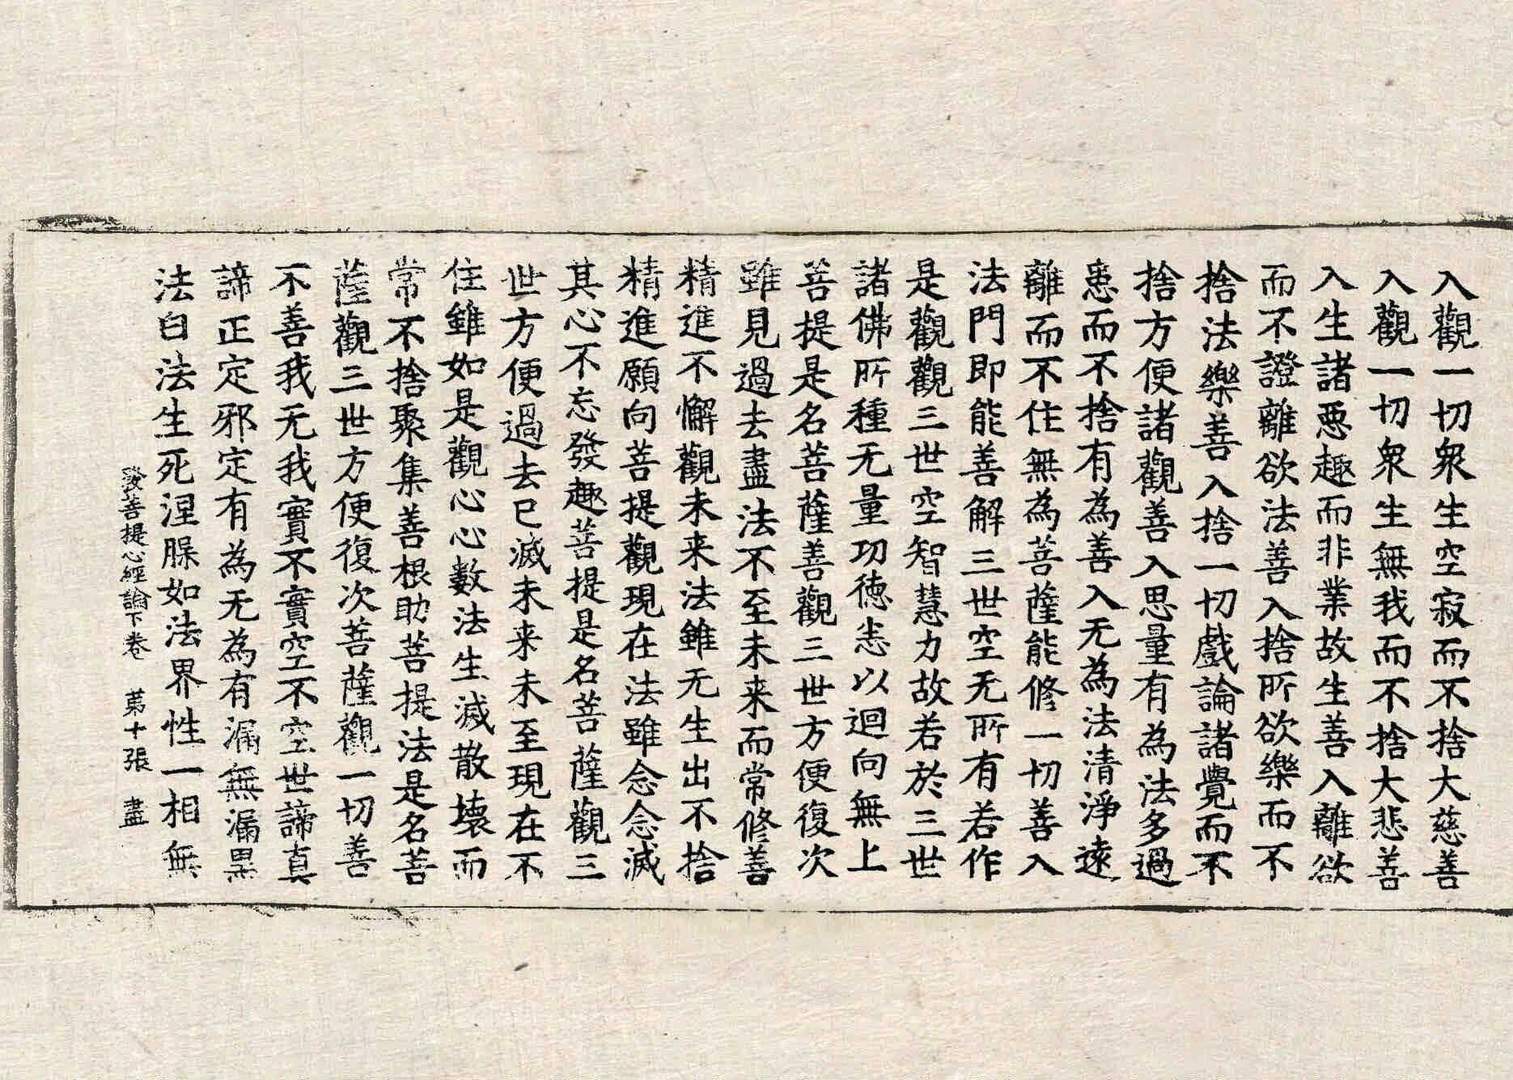 入觀一切衆生空寂而不捨大慈善
入觀一切衆生無我而不捨大悲善
入生諸惡趣而非業故生善入離欲
而不證離欲法善入捨所欲樂而不
捨法樂善入捨一切戲論諸覺而不
捨方便諸觀善入思量有為法多過
患而不捨有為善入无為法清淨遠
離而不住無為菩薩能修一切善入
法門即能善解三世空无所有若作
是觀觀三世空智慧力故若於三世
諸佛所種无量功徳悉以迴向無上
菩提是名菩薩善觀三世方便復次
雖見過去盡法不至未来而常修善
精進不懈觀未来法雖无生出不捨
精進願向菩提觀現在法雖念念滅
其心不忘發趣菩提是名菩薩觀三
世方便過去已滅未来未至現在不
住雖如是觀心心數法生滅散壞而
常不捨聚集善根助菩提法是名菩
薩觀三世方便復次菩薩觀一切善
不善我无我實不實空不空世諦真
諦正定邪定有為无為有漏無漏黑
法白法生死涅槃如法界性一相無
發菩提心經論下卷 第十張 盡